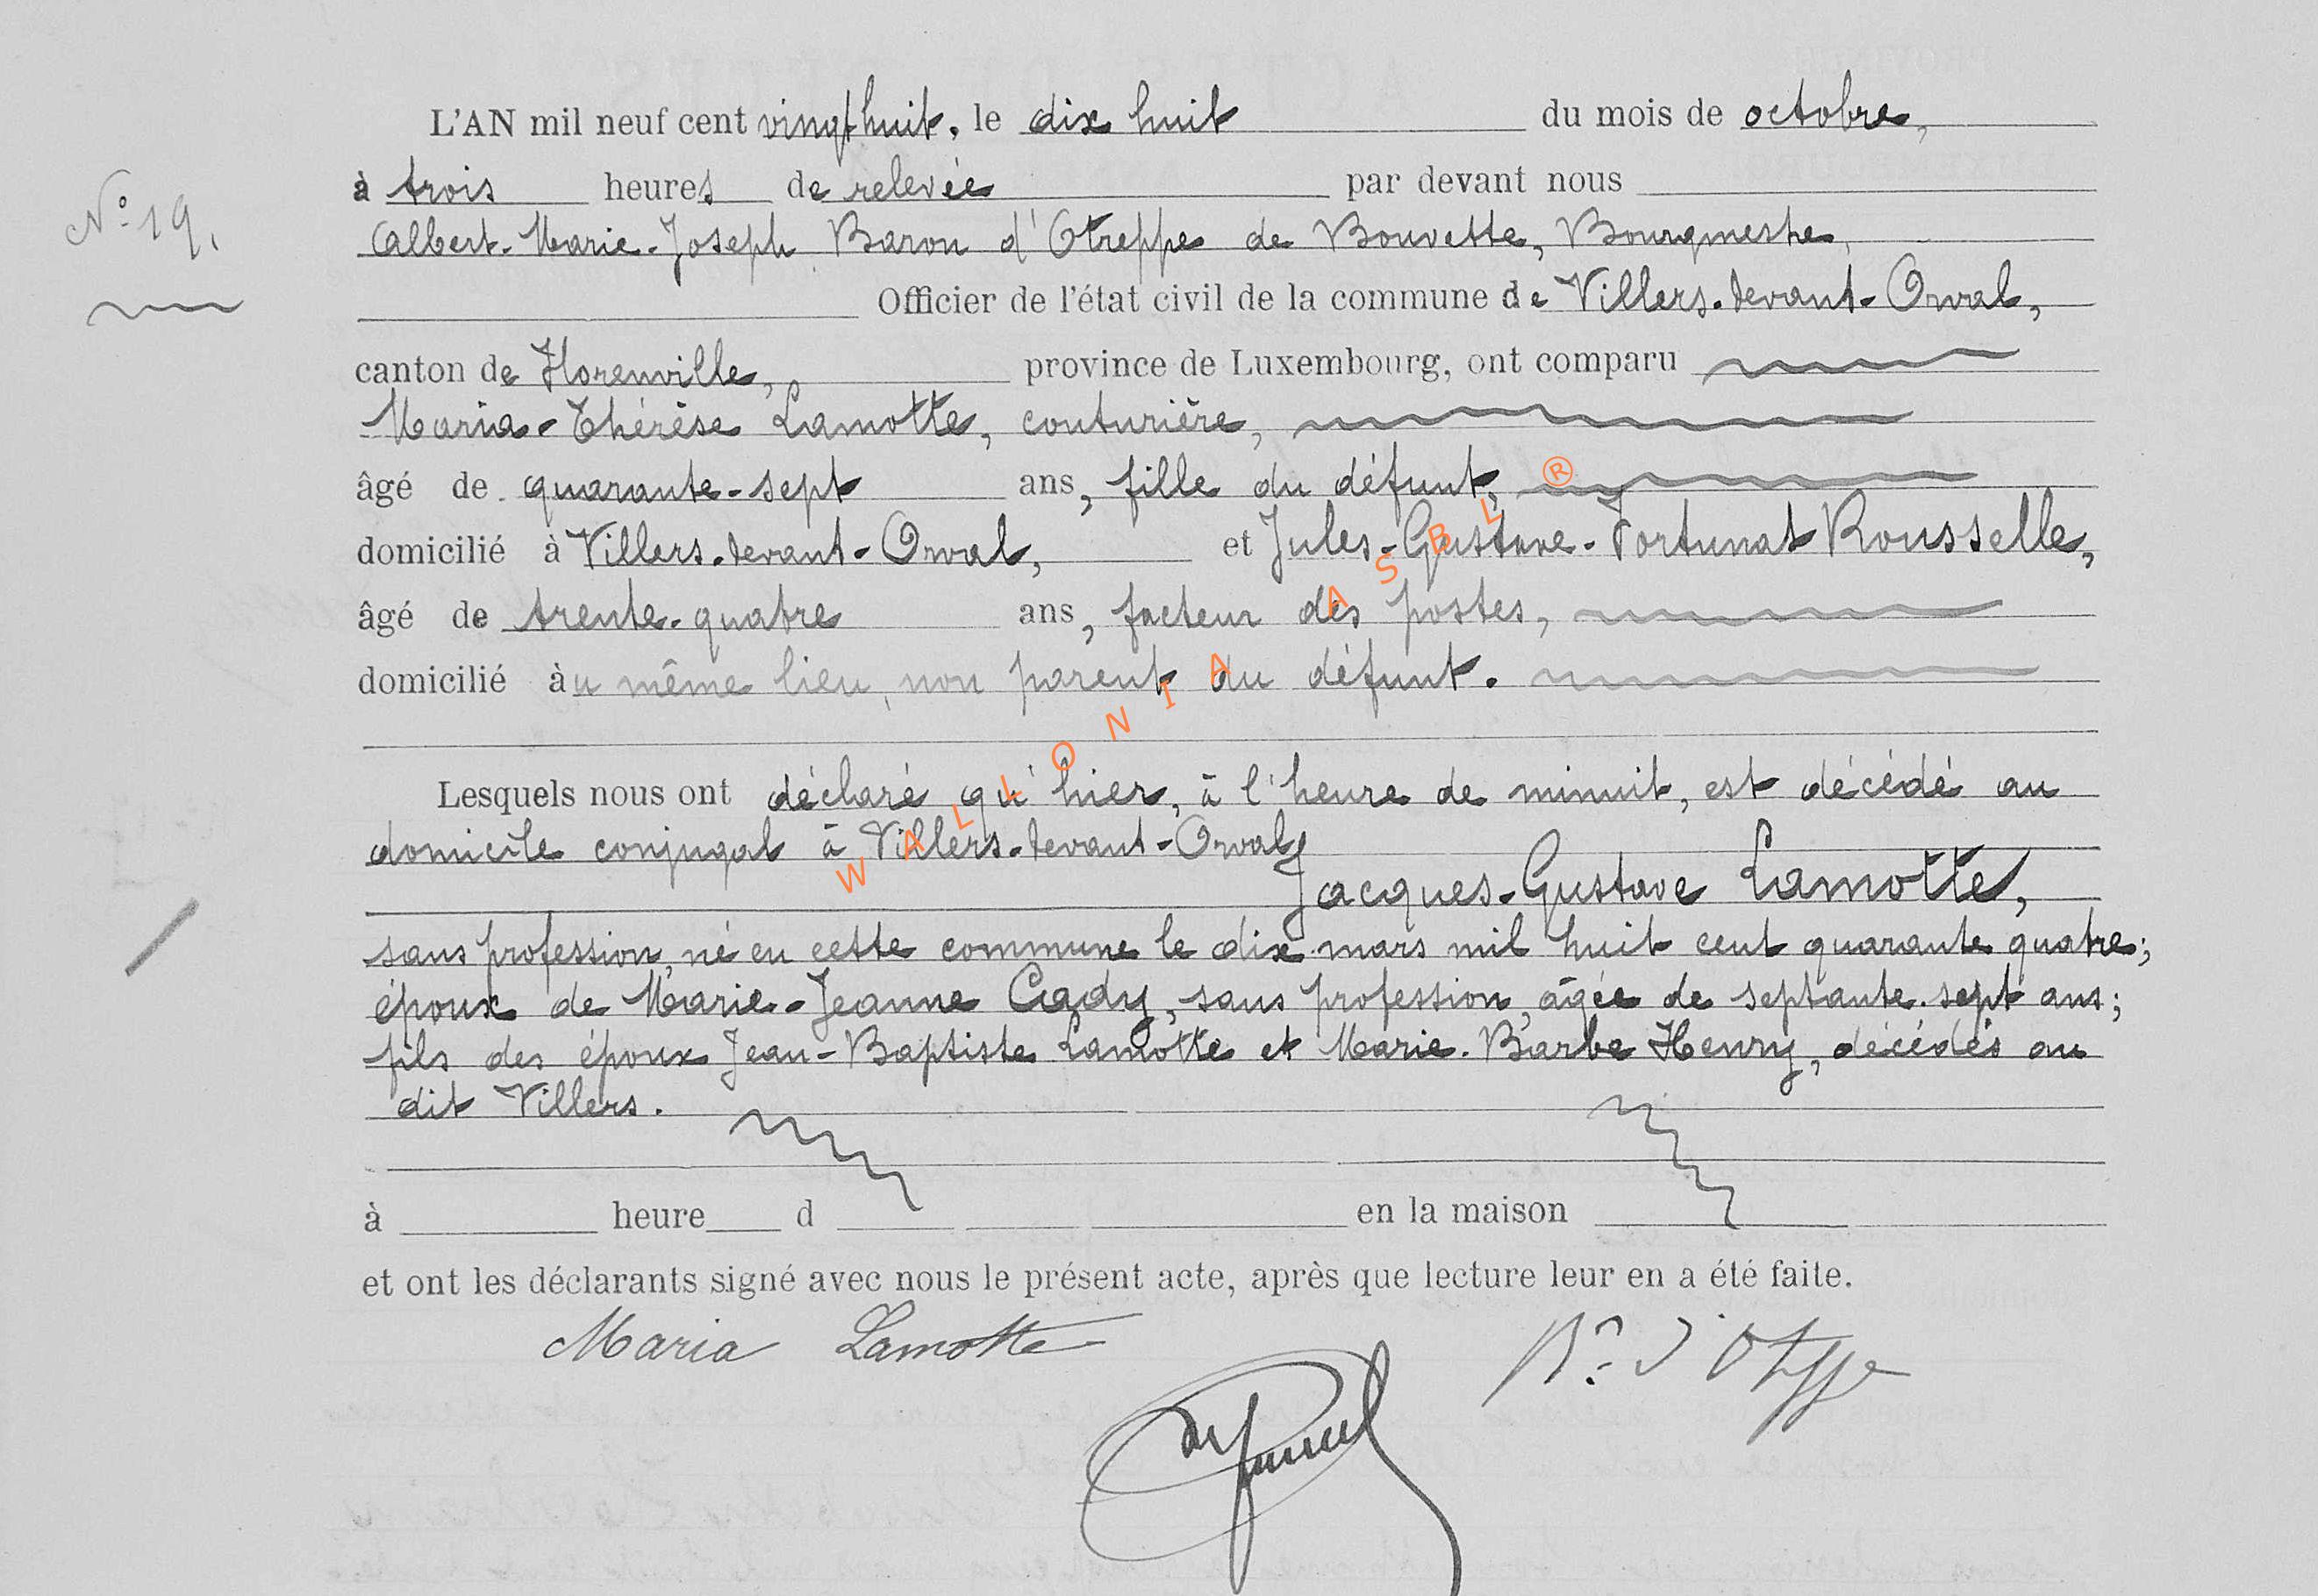 L'AN mil neuf cent vingt huit, le dix huit du mois de octobre,
à trois heures de relevée par devant nous
N° 19.
Albert-Marie-Joseph Baron d'Otreppe de Bouvette, Bourgmestre,
Officier de l'état civil de la commune de Villers-devant-Orval,
canton de Florenville, province de Luxembourg, ont comparu
Maria-Thérèse Lamotte, couturière,
âgé de quarante-sept ans, fille du défunt,
domicilié à Villers-devant-Orval, et Jules-Gustave-Fortunat Rousselle,
âgé de trente-quatre ans, facteur des postes,
domicilié au même lieu, non parent du défunt.
Lesquels nous ont déclaré qu'hier, à l'heure de minuit, est décédé au
domicile conjugal à Villers-devant-Orval,
Jacques-Gustave Lamotte,
sans profession, né en cette commune le dix mars mil huit cent quarante quatre;
époux de Marie-Jeanne Cady, sans profession, âgée de septante-sept ans;
fils des époux Jean-Baptiste Lamotte et Marie-Barbe Henry, décédés au
dit Villers.
à heure d en la maison
et ont les déclarants signé avec nous le présent acte, après que lecture leur en a été faite.
Maria Lamotte
Bon d'Otreppe
WALLONIA ASBL ®